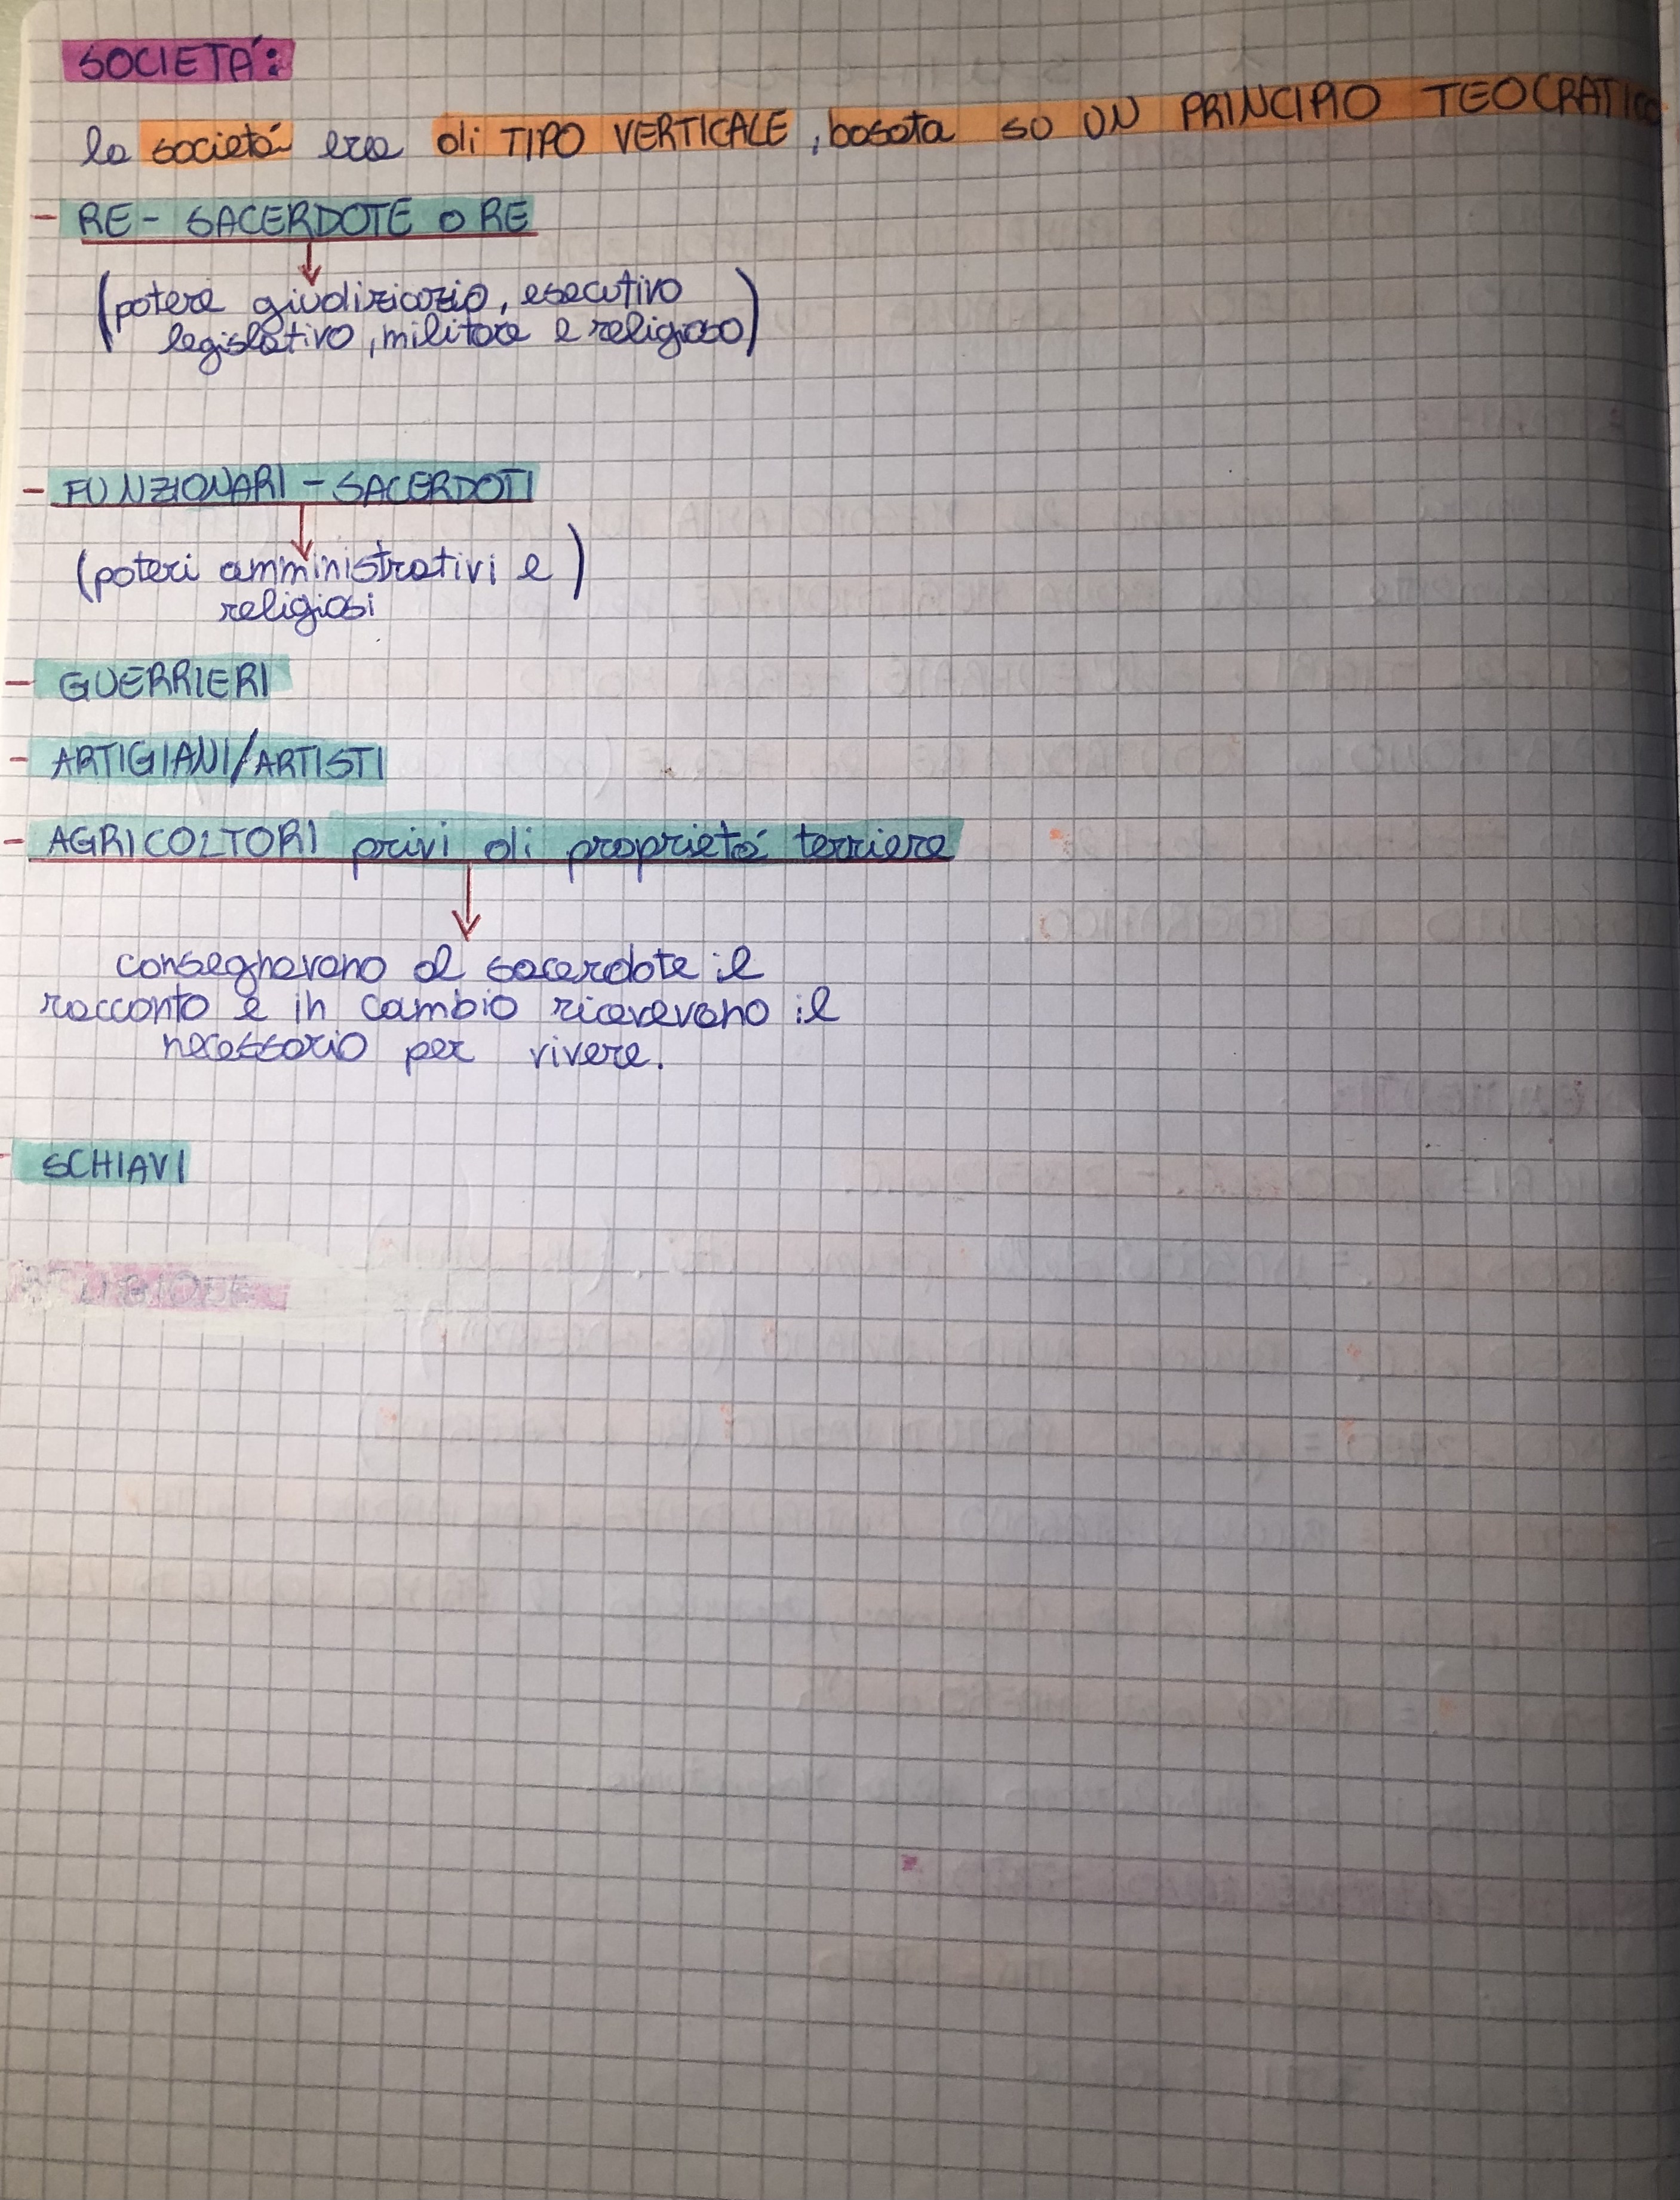 SOCIETÁ:
la societá era di TIPO VERTICALE, basata SO UN PRINCIPIO TEOCRATICO
- RE - SACERDOTE O RE
(potere giudiziario, esecutivo
legislativo, militare e religioso)
- FUNZIONARI - SACERDOTI
(poteri amministrativi e)
religiosi
- GUERRIERI
- ARTIGIANI/ARTISTI
- AGRICOLTORI privi di proprietá terriere
consegnavano al sacerdote il
racconto e in cambio ricevevano il
necessario per vivere.
- SCHIAVI